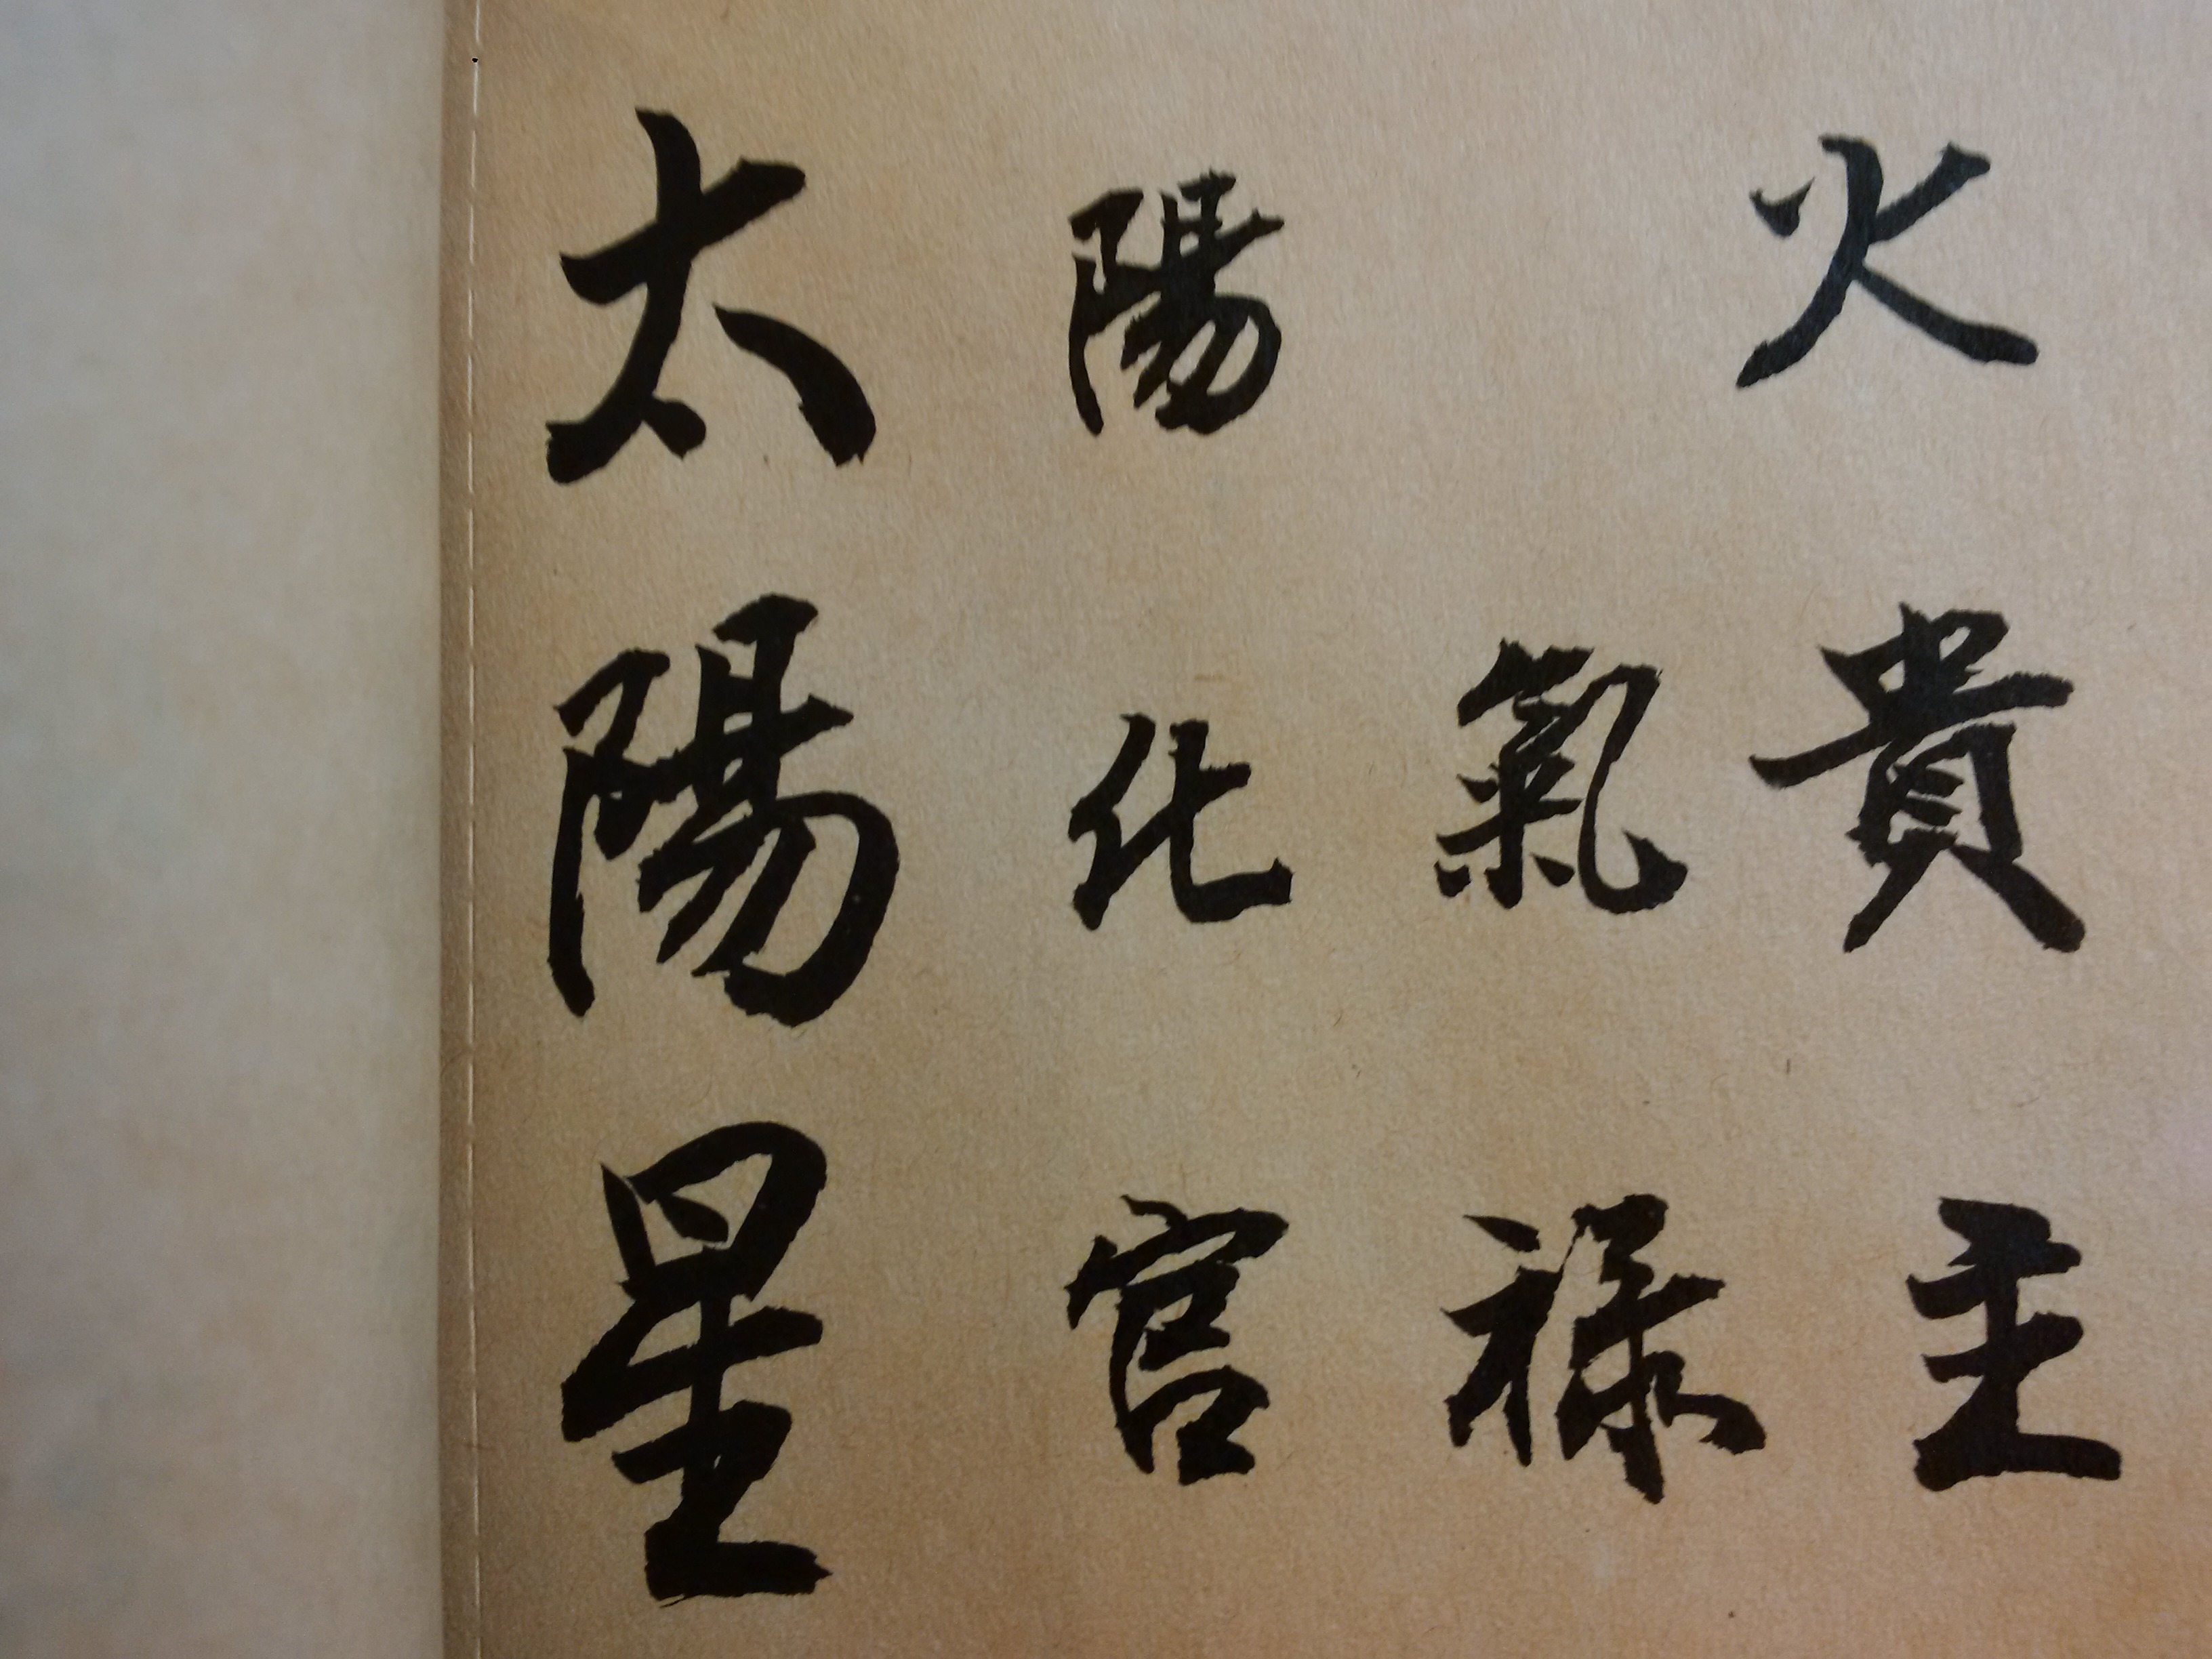 太陽星
陽 火
化氣貴
官祿主